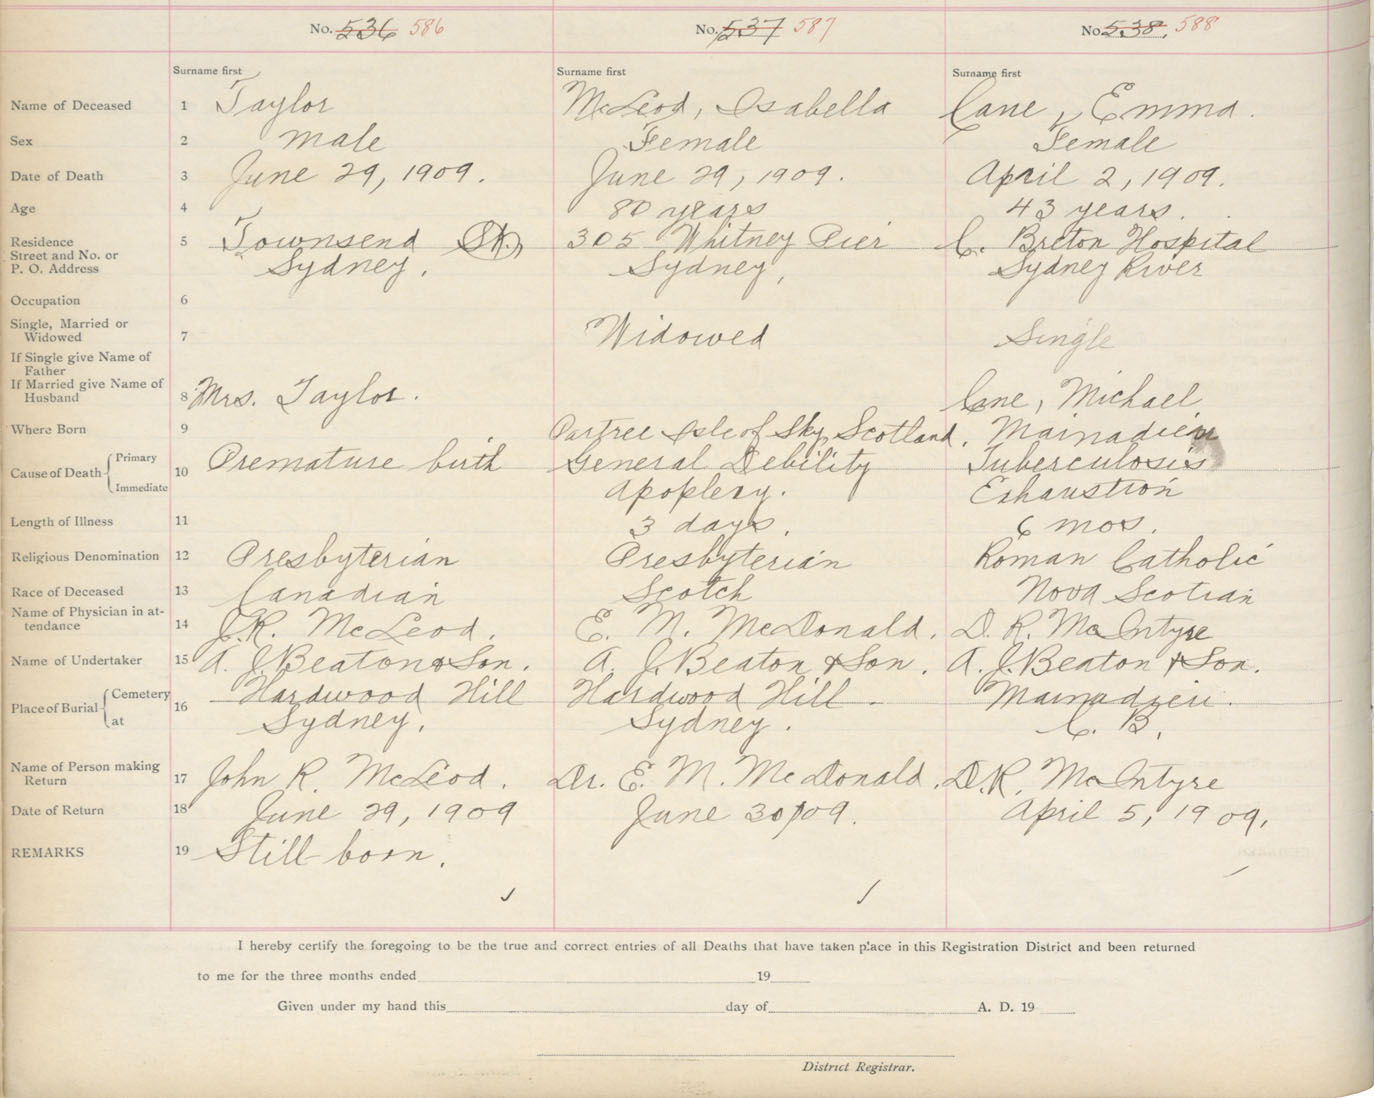 No. 536 586 No. 537 587 No. 538. 588
Surname first Surname first Surname first
Name of Deceased 1 Taylor McLeod, Isabella Cane, Emma.
Sex 2 male Female Female
Date of Death 3 June 29, 1909. June 29, 1909. April 2, 1909.
Age 4 80 years 43 years.
Residence 5 Townsend St., 305 Whitney Pier C. Breton Hospital
Street and No. or
P. O. Address Sydney. Sydney, Sydney River
Occupation 6
Single, Married or
Widowed 7 Widowed Single
If Single give Name of
Father
If Married give Name of
Husband 8 Mrs. Taylor. Cane, Michael
Where Born 9 Portree Isle of Sky Scotland. Mainadieu
Cause of Death Primary 10 Premature birth General Debility Tuberculosis
Immediate Apoplexy. Exhaustion
Length of Illness 11 3 days. 6 mos.
Religious Denomination 12 Presbyterian Presbyterian Roman Catholic
Race of Deceased 13 Canadian Scotch Nova Scotian
Name of Physician in at-
tendance 14 J.R. McLeod. E. M. McDonald. D. R. McIntyre
Name of Undertaker 15 A. J. Beaton & Son. A. J. Beaton & Son. A. J. Beaton & Son.
Place of Burial Cemetery 16 Hardwood Hill Hardwood Hill Mainadieu.
at Sydney. Sydney. C. B.
Name of Person making
Return 17 John R. McLeod. Dr. E. M. McDonald. D. R. McIntyre
Date of Return 18 June 29, 1909 June 30/09. April 5, 1909.
REMARKS 19 Still-born.
I hereby certify the foregoing to be the true and correct entries of all Deaths that have taken place in this Registration District and been returned
to me for the three months ended 19
Given under my hand this day of A. D. 19
District Registrar.